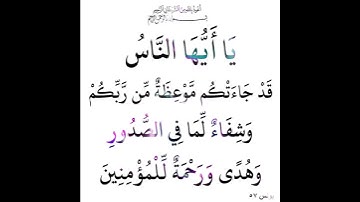 أعوذ بالله من الشيطان الرجيم
يَا أَيُّهَا النَّاسُ
قَدْ جَاءَتْكُم مَّوْعِظَةٌ مِّن رَّبِّكُمْ
وَشِفَاءٌ لِّمَا فِي الصُّدُورِ
وَهُدًى وَرَحْمَةٌ لِّلْمُؤْمِنِينَ
يونس ٥٧